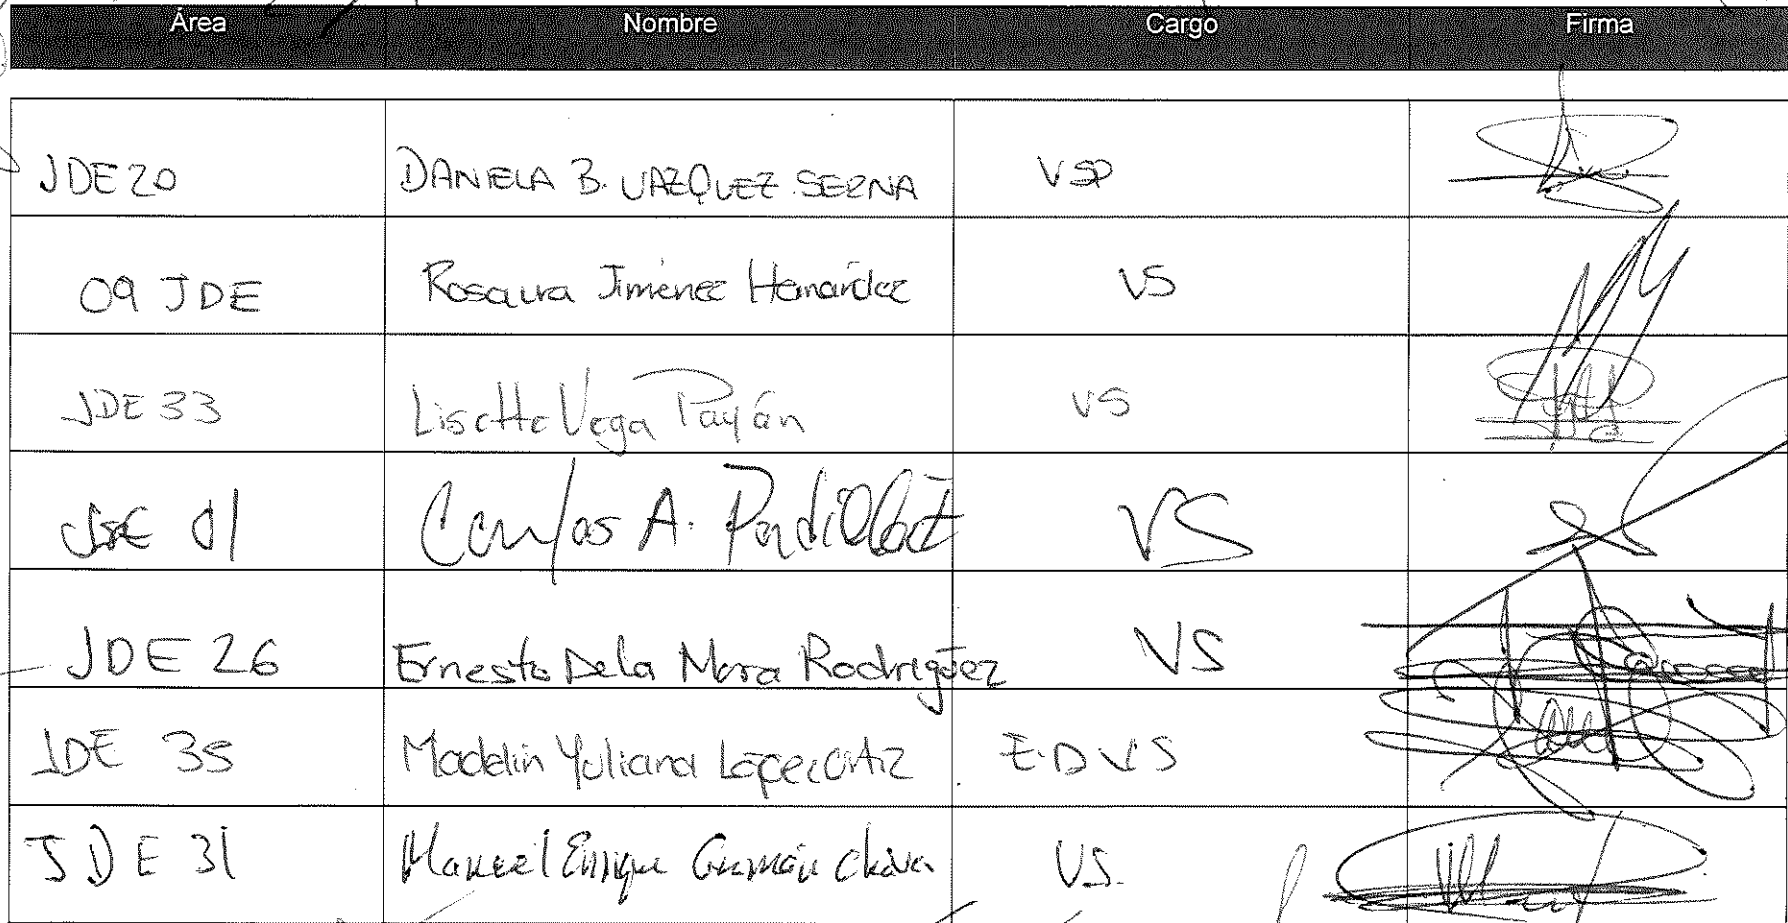 Área Nombre Cargo Firma
JDE 20 DANIELA B. VAZQUEZ SERNA VSP
09 JDE Rosaura Jiménez Hernández VS
JDE 33 Lisette Vega Payán VS
01 Carlos A. VS
JDE 26 Ernesto De la Mora Rodrigúez VS
JDE 35 Madelin Yuliana López Ortiz E.D VS
JDE 31 Manuel Enrique Guzmán VS.